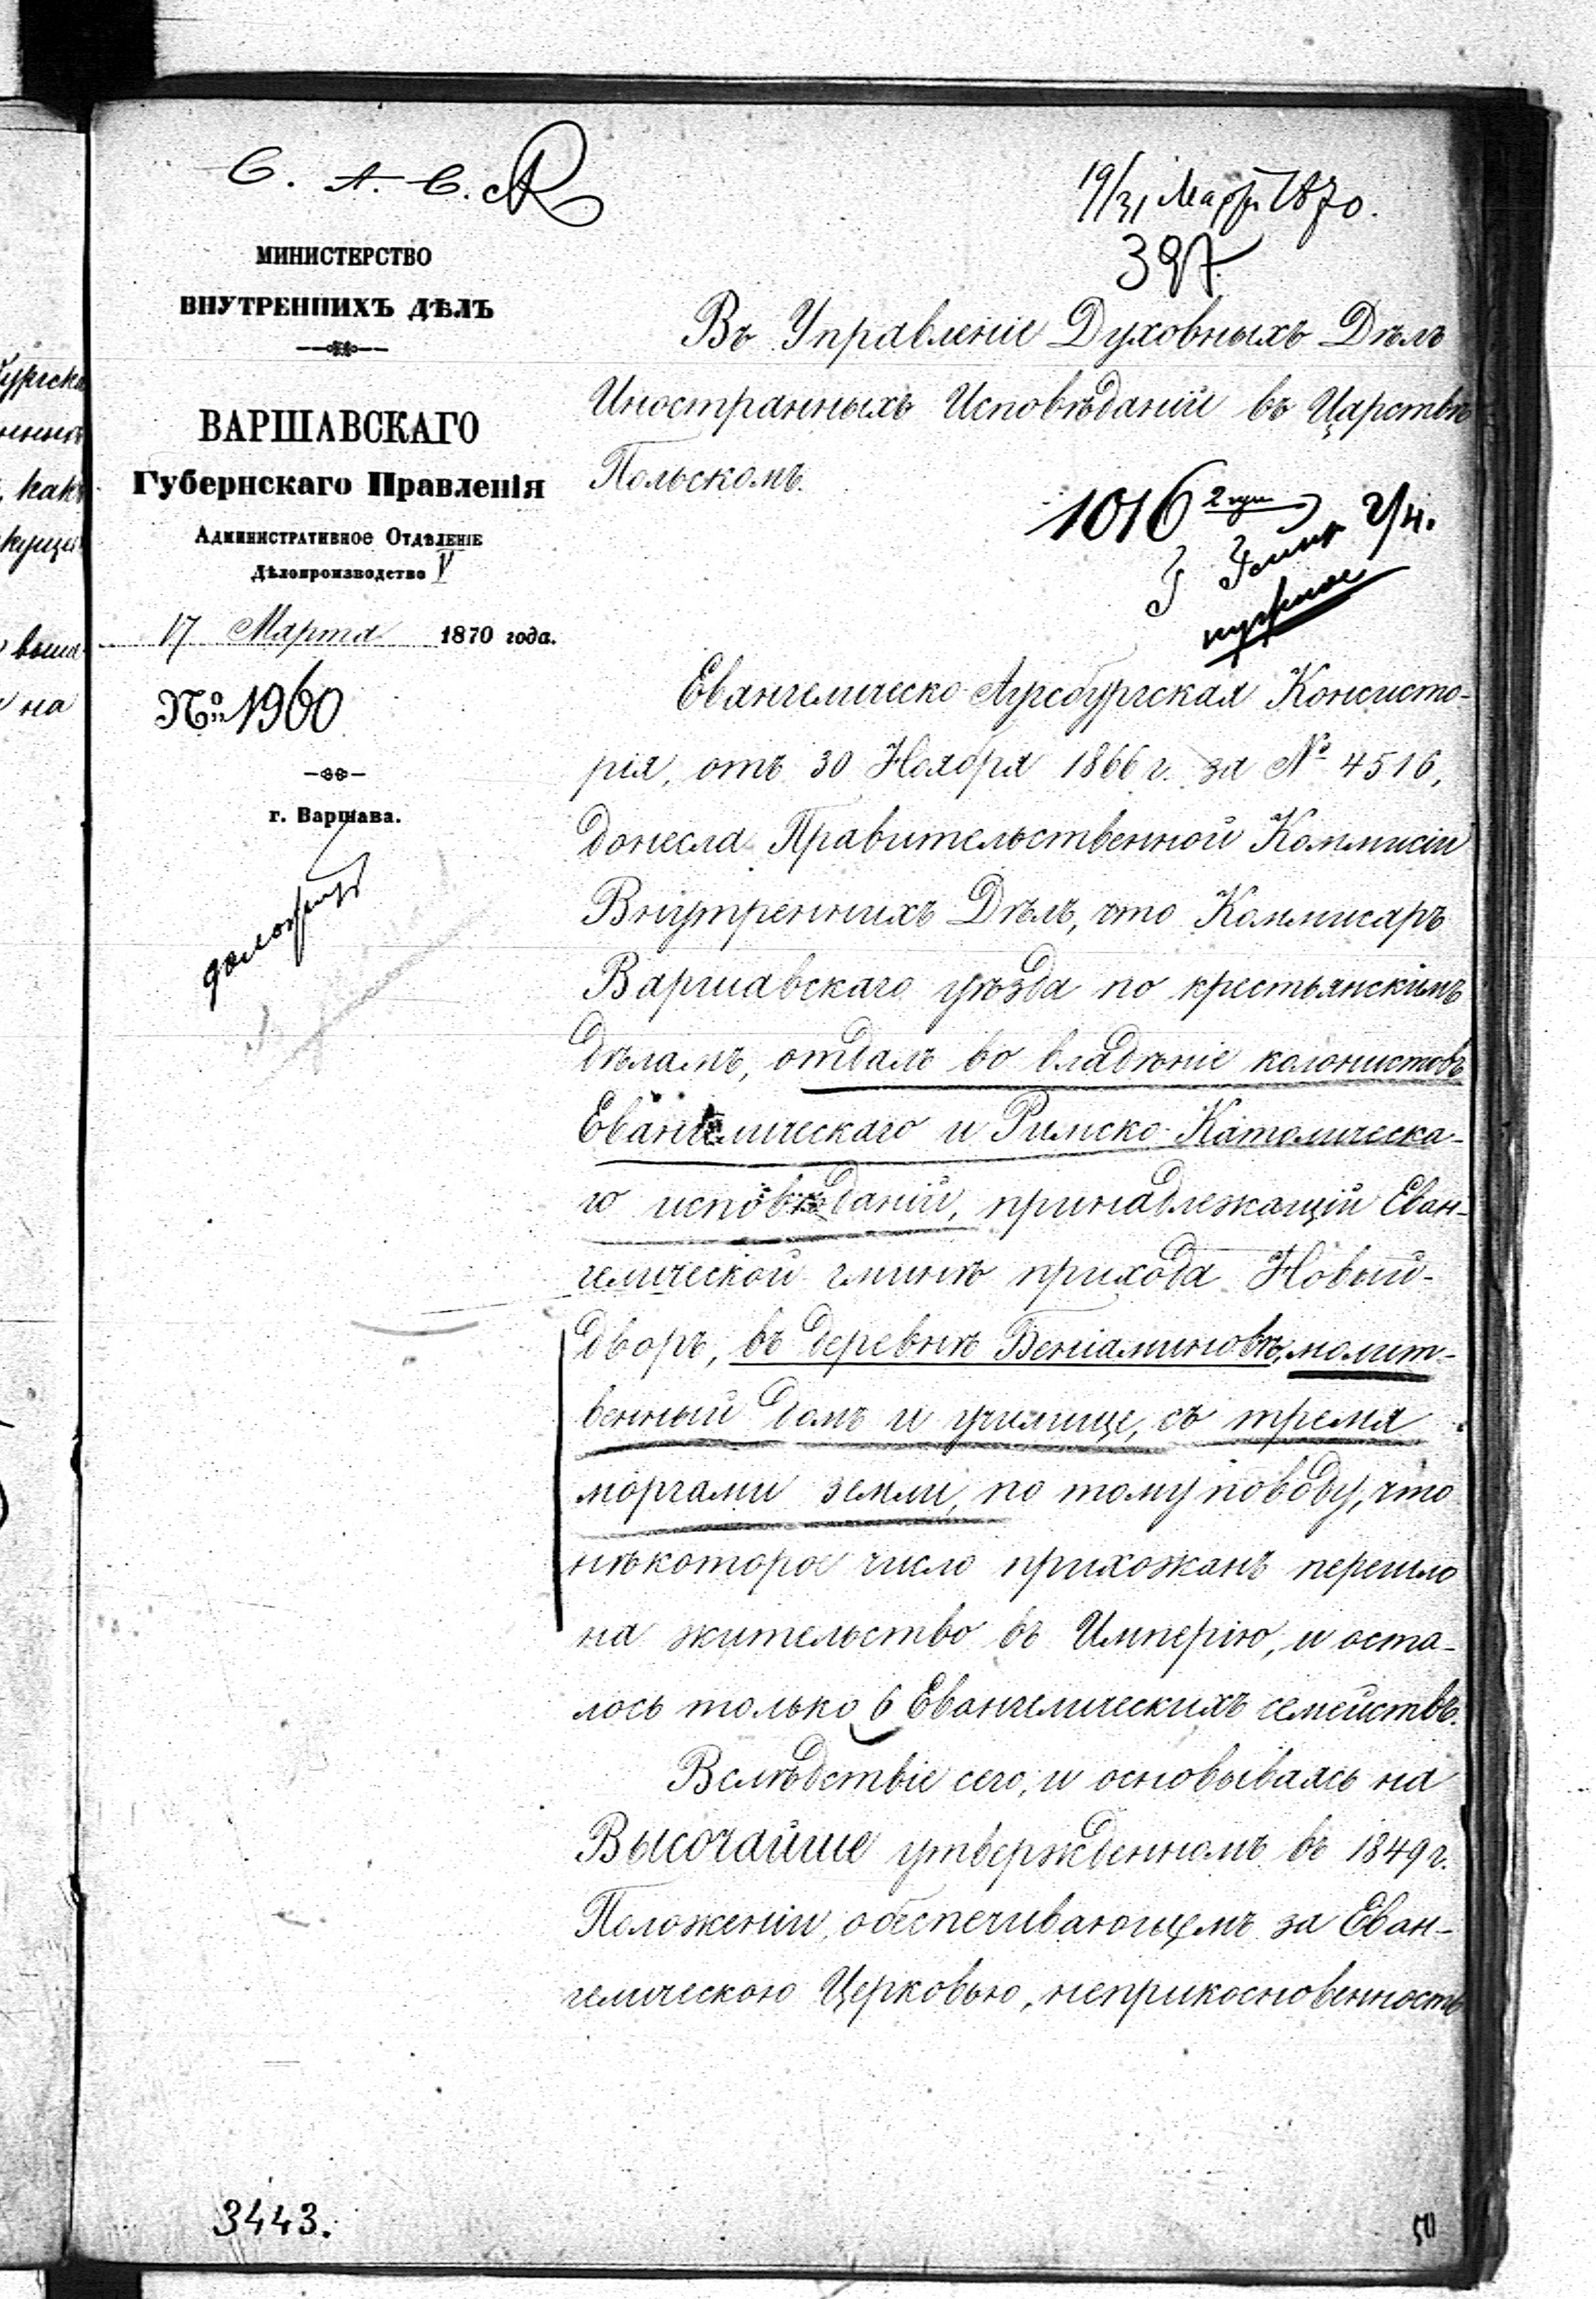 С. А. С.
19/31 Март. 1870.
397.
МИНИСТЕРСТВО
ВНУТРЕННИХЪ ДѢЛЪ
ВАРШАВСКАГО
Губернскаго Правленія
Административное Отдѣленіе
Дѣлопроизводство V
17 Марта 1870 года.
№ 1960
г. Варшава.
Въ Управленіе Духовныхъ Дѣлъ
Иностранныхъ Исповѣданій въ Царствѣ
Польскомъ.
1016 2/4.
нужное
Евангелическо-Аугсбургская Консисто-
рія, отъ 30 Ноября 1866 г. за № 4516,
донесла Правительственной Коммисіи
Внутреннихъ Дѣлъ, что Коммисаръ
Варшавскаго уѣзда по крестьянскимъ
дѣламъ, отдалъ во владѣніе колонистовъ
Евангелическаго и Римско-Католическа-
го исповѣданій, принадлежащій Еван-
гелической гминѣ прихода Новый-
дворъ, въ деревнѣ Беніаминовѣ, молит-
венный домъ и училище, съ тремя
моргами земли, по тому поводу, что
нѣкоторое число прихожанъ перешло
на жительство въ Имперію, и оста-
лось только 6 Евангелическихъ семействъ.
Вслѣдствіе сего, и основываясь на
Высочайше утвержденномъ въ 1849 г.
Положеніи, обеспечивающемъ за Еван-
гелическою Церковью, неприкосновенность
3443.